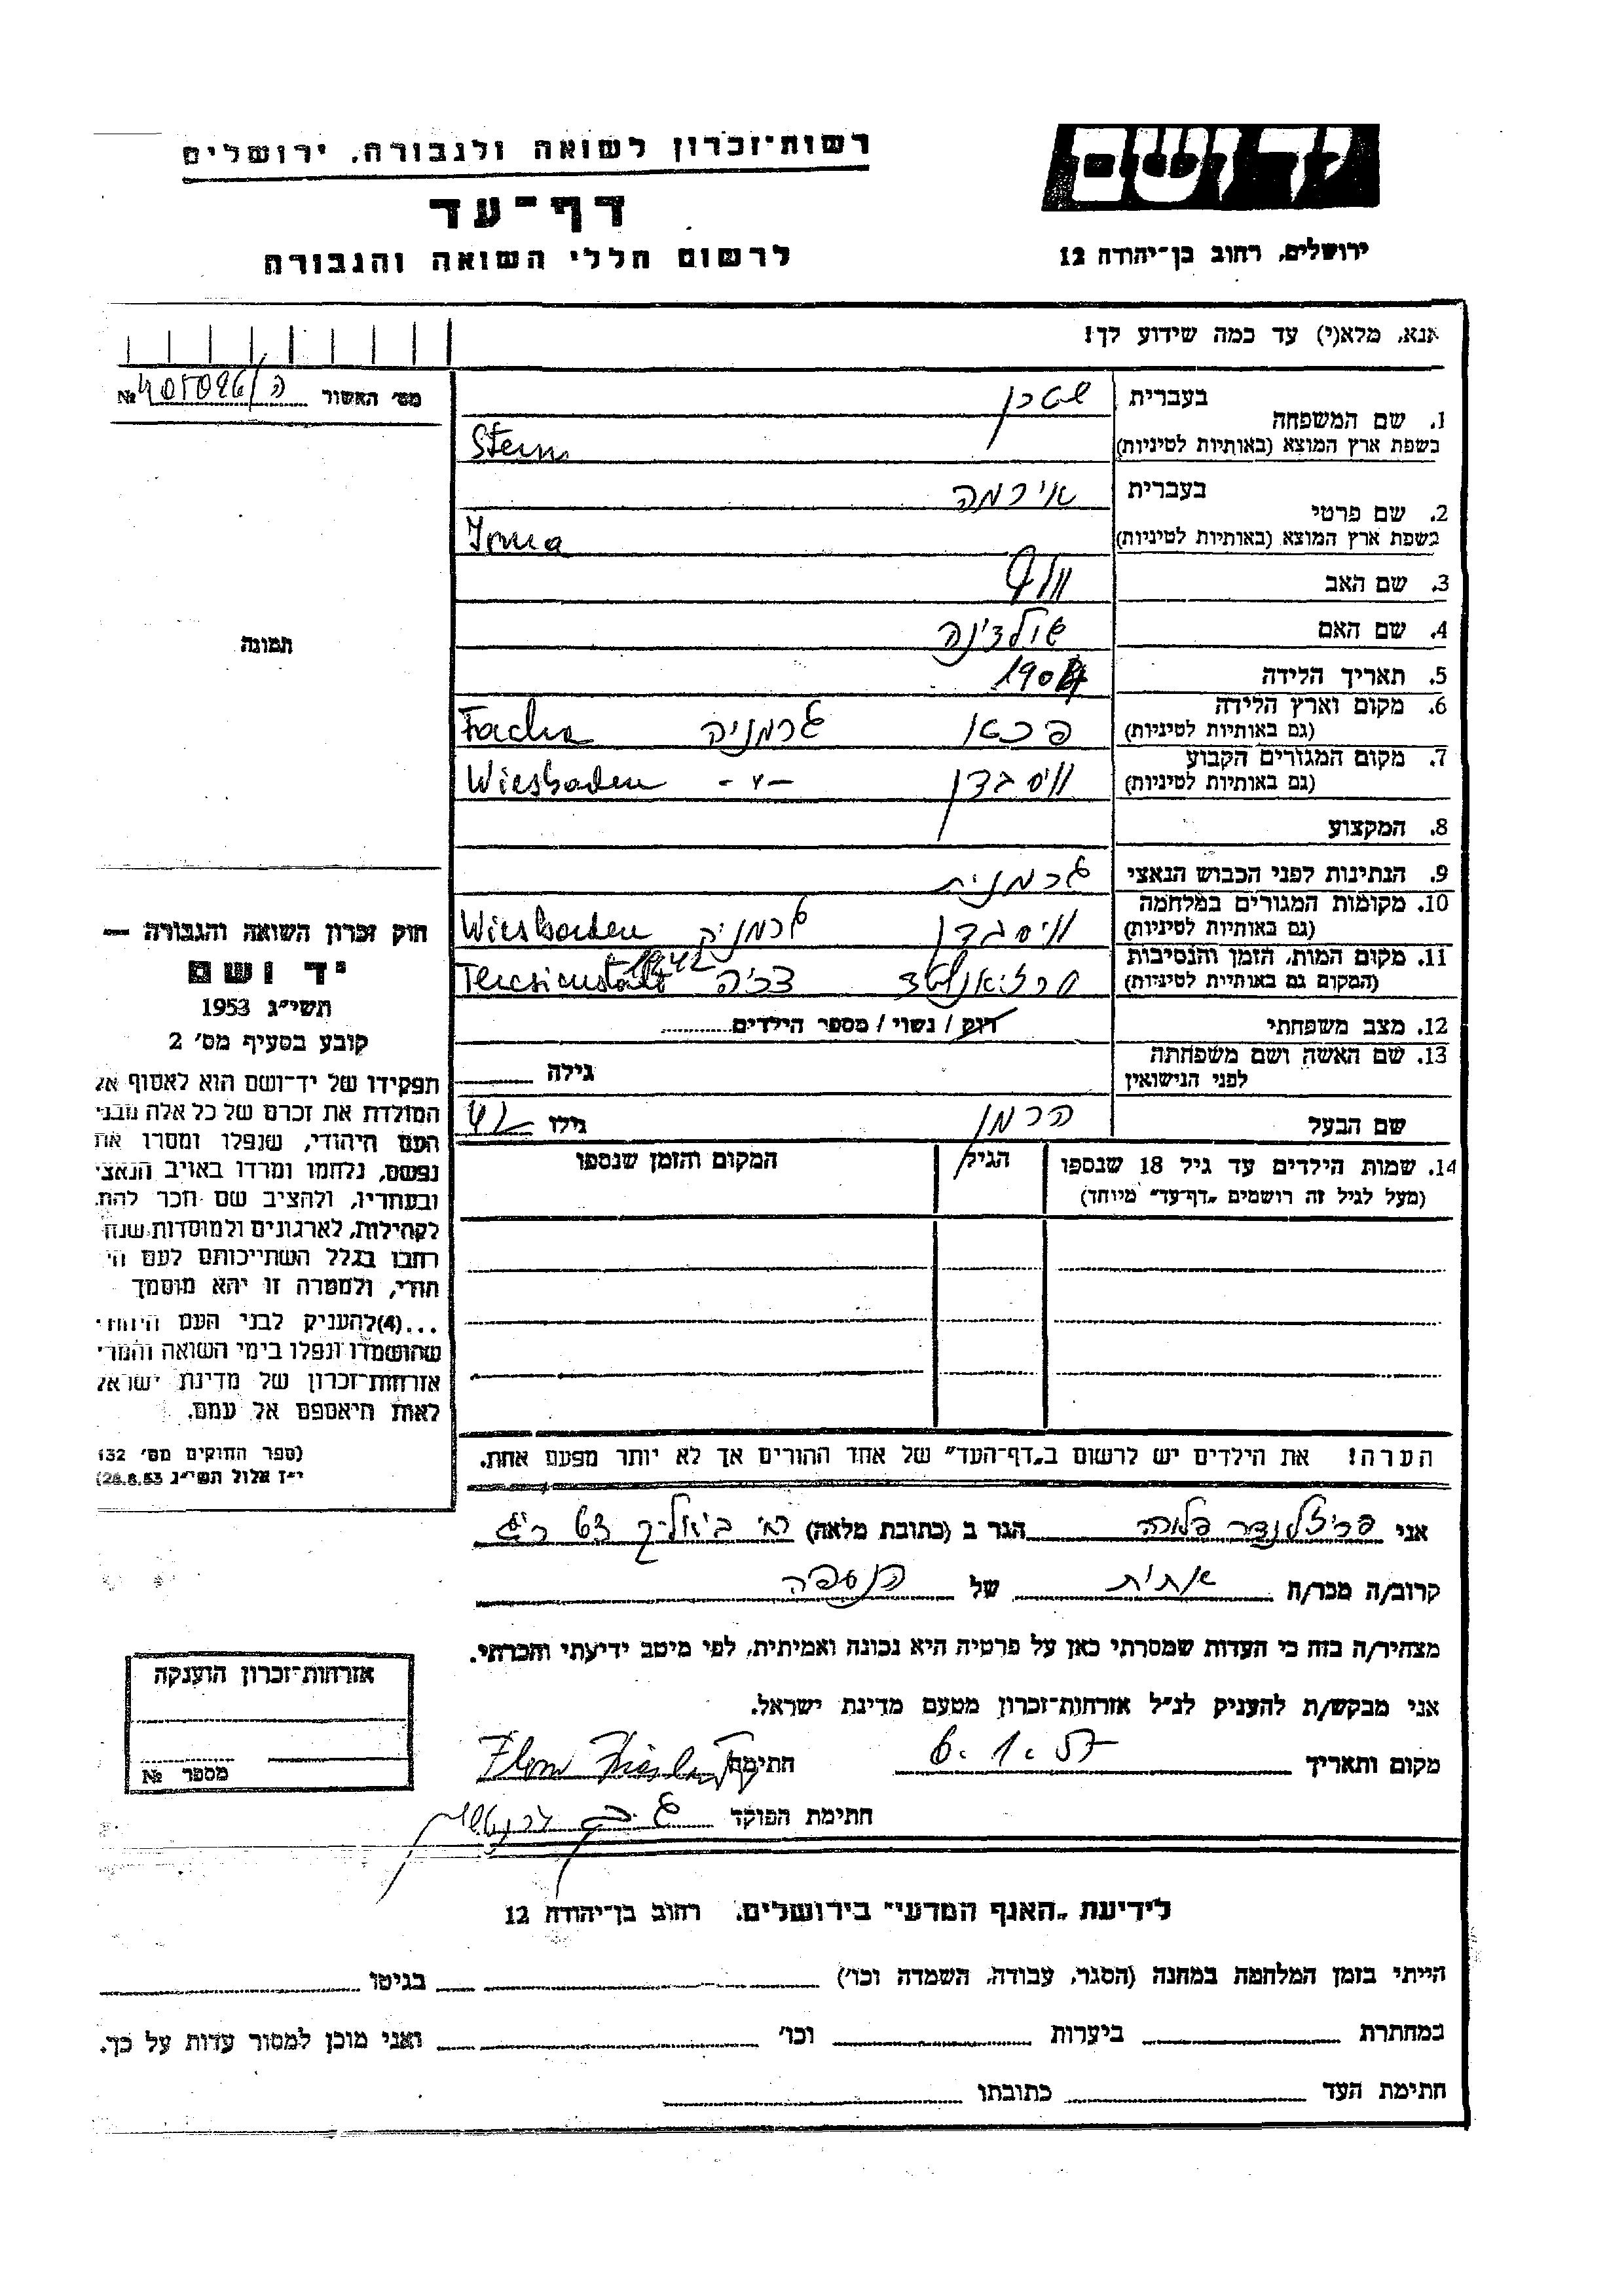 יד ושם
רשות־זכרון לשואה ולגבורה, ירושלים
דף־עד
לרשום חללי השואה והגבורה
ירושלים, רחוב בן־יהודה 12
אנא, מלא(י) עד כמה שידוע לך!
מס׳ האשור № 405096/ה
1. שם המשפחה
בעברית שטרן
בשפת ארץ המוצא (באותיות לטיניות) Stern
2. שם פרטי
בעברית אירמה
בשפת ארץ המוצא (באותיות לטיניות) Irma
3. שם האב
4. שם האם
5. תאריך הלידה 1904
6. מקום וארץ הלידה
(גם באותיות לטיניות) גרמניה
7. מקום המגורים הקבוע
(גם באותיות לטיניות) ויסבדן -״- Wiesbaden
8. המקצוע
9. הנתינות לפני הכבוש הנאצי גרמנית
10. מקומות המגורים במלחמה
(גם באותיות לטיניות) ויסבדן גרמניה Wiesbaden
11. מקום המות, הזמן והנסיבות
(המקום גם באותיות לטיניות) 1942 Teresienstadt
12. מצב משפחתי רווק / נשוי / מספר הילדים
13. שם האשה ושם משפחתה
לפני הנישואין גילה
שם הבעל הרמן גילו 42
14. שמות הילדים עד גיל 18 שנספו
(מעל לגיל זה רושמים „דף־עד״ מיוחד)
הגיל
המקום והזמן שנספו
הערה! את הילדים יש לרשום ב„דף־העד״ של אחד ההורים אך לא יותר מפעם אחת.
תמונה
חוק זכרון השואה והגבורה —
יד ושם
תשי״ג 1953
קובע בסעיף מס׳ 2
תפקידו של יד־ושם הוא לאסוף אל
המולדת את זכרם של כל אלה מבני
העם היהודי, שנפלו ומסרו את
נפשם, נלחמו ומרדו באויב הנאצי
ובעוזריו, ולהציב שם וזכר להם,
לקהילות, לארגונים ולמוסדות שנח
רבו בגלל השתייכותם לעם הי
הודי, ולמטרה זו יהא מוסמך
...(4) להעניק לבני העם היהודי
שהושמדו ונפלו בימי השואה והמרי
אזרחות־זכרון של מדינת ישראל
לאות היאספם אל עמם.
(ספר החוקים מס׳ 132
י״ז אלול תשי״ג 28.8.53)
אני פרידלנדר פלורה הגר ב (כתובת מלאה) רח׳ ביאליק 63 ר״ג
קרוב/ה מכר/ה אחות של הנספה
מצהיר/ה בזה כי העדות שמסרתי כאן על פרטיה היא נכונה ואמיתית, לפי מיטב ידיעתי והכרתי.
אני מבקש/ת להעניק לנ״ל אזרחות־זכרון מטעם מדינת ישראל.
מקום ותאריך 6.1.57 חתימה
חתימת הפוקד
אזרחות־זכרון הוענקה
מספר №
לידיעת „האגף המדעי״ בירושלים, רחוב בן־יהודה 12
הייתי בזמן המלחמה במחנה (הסגר, עבודה, השמדה וכו׳) בגיטו
במחתרת ביערות וכו׳ ואני מוכן למסור עדות על כך.
חתימת העד כתובתו